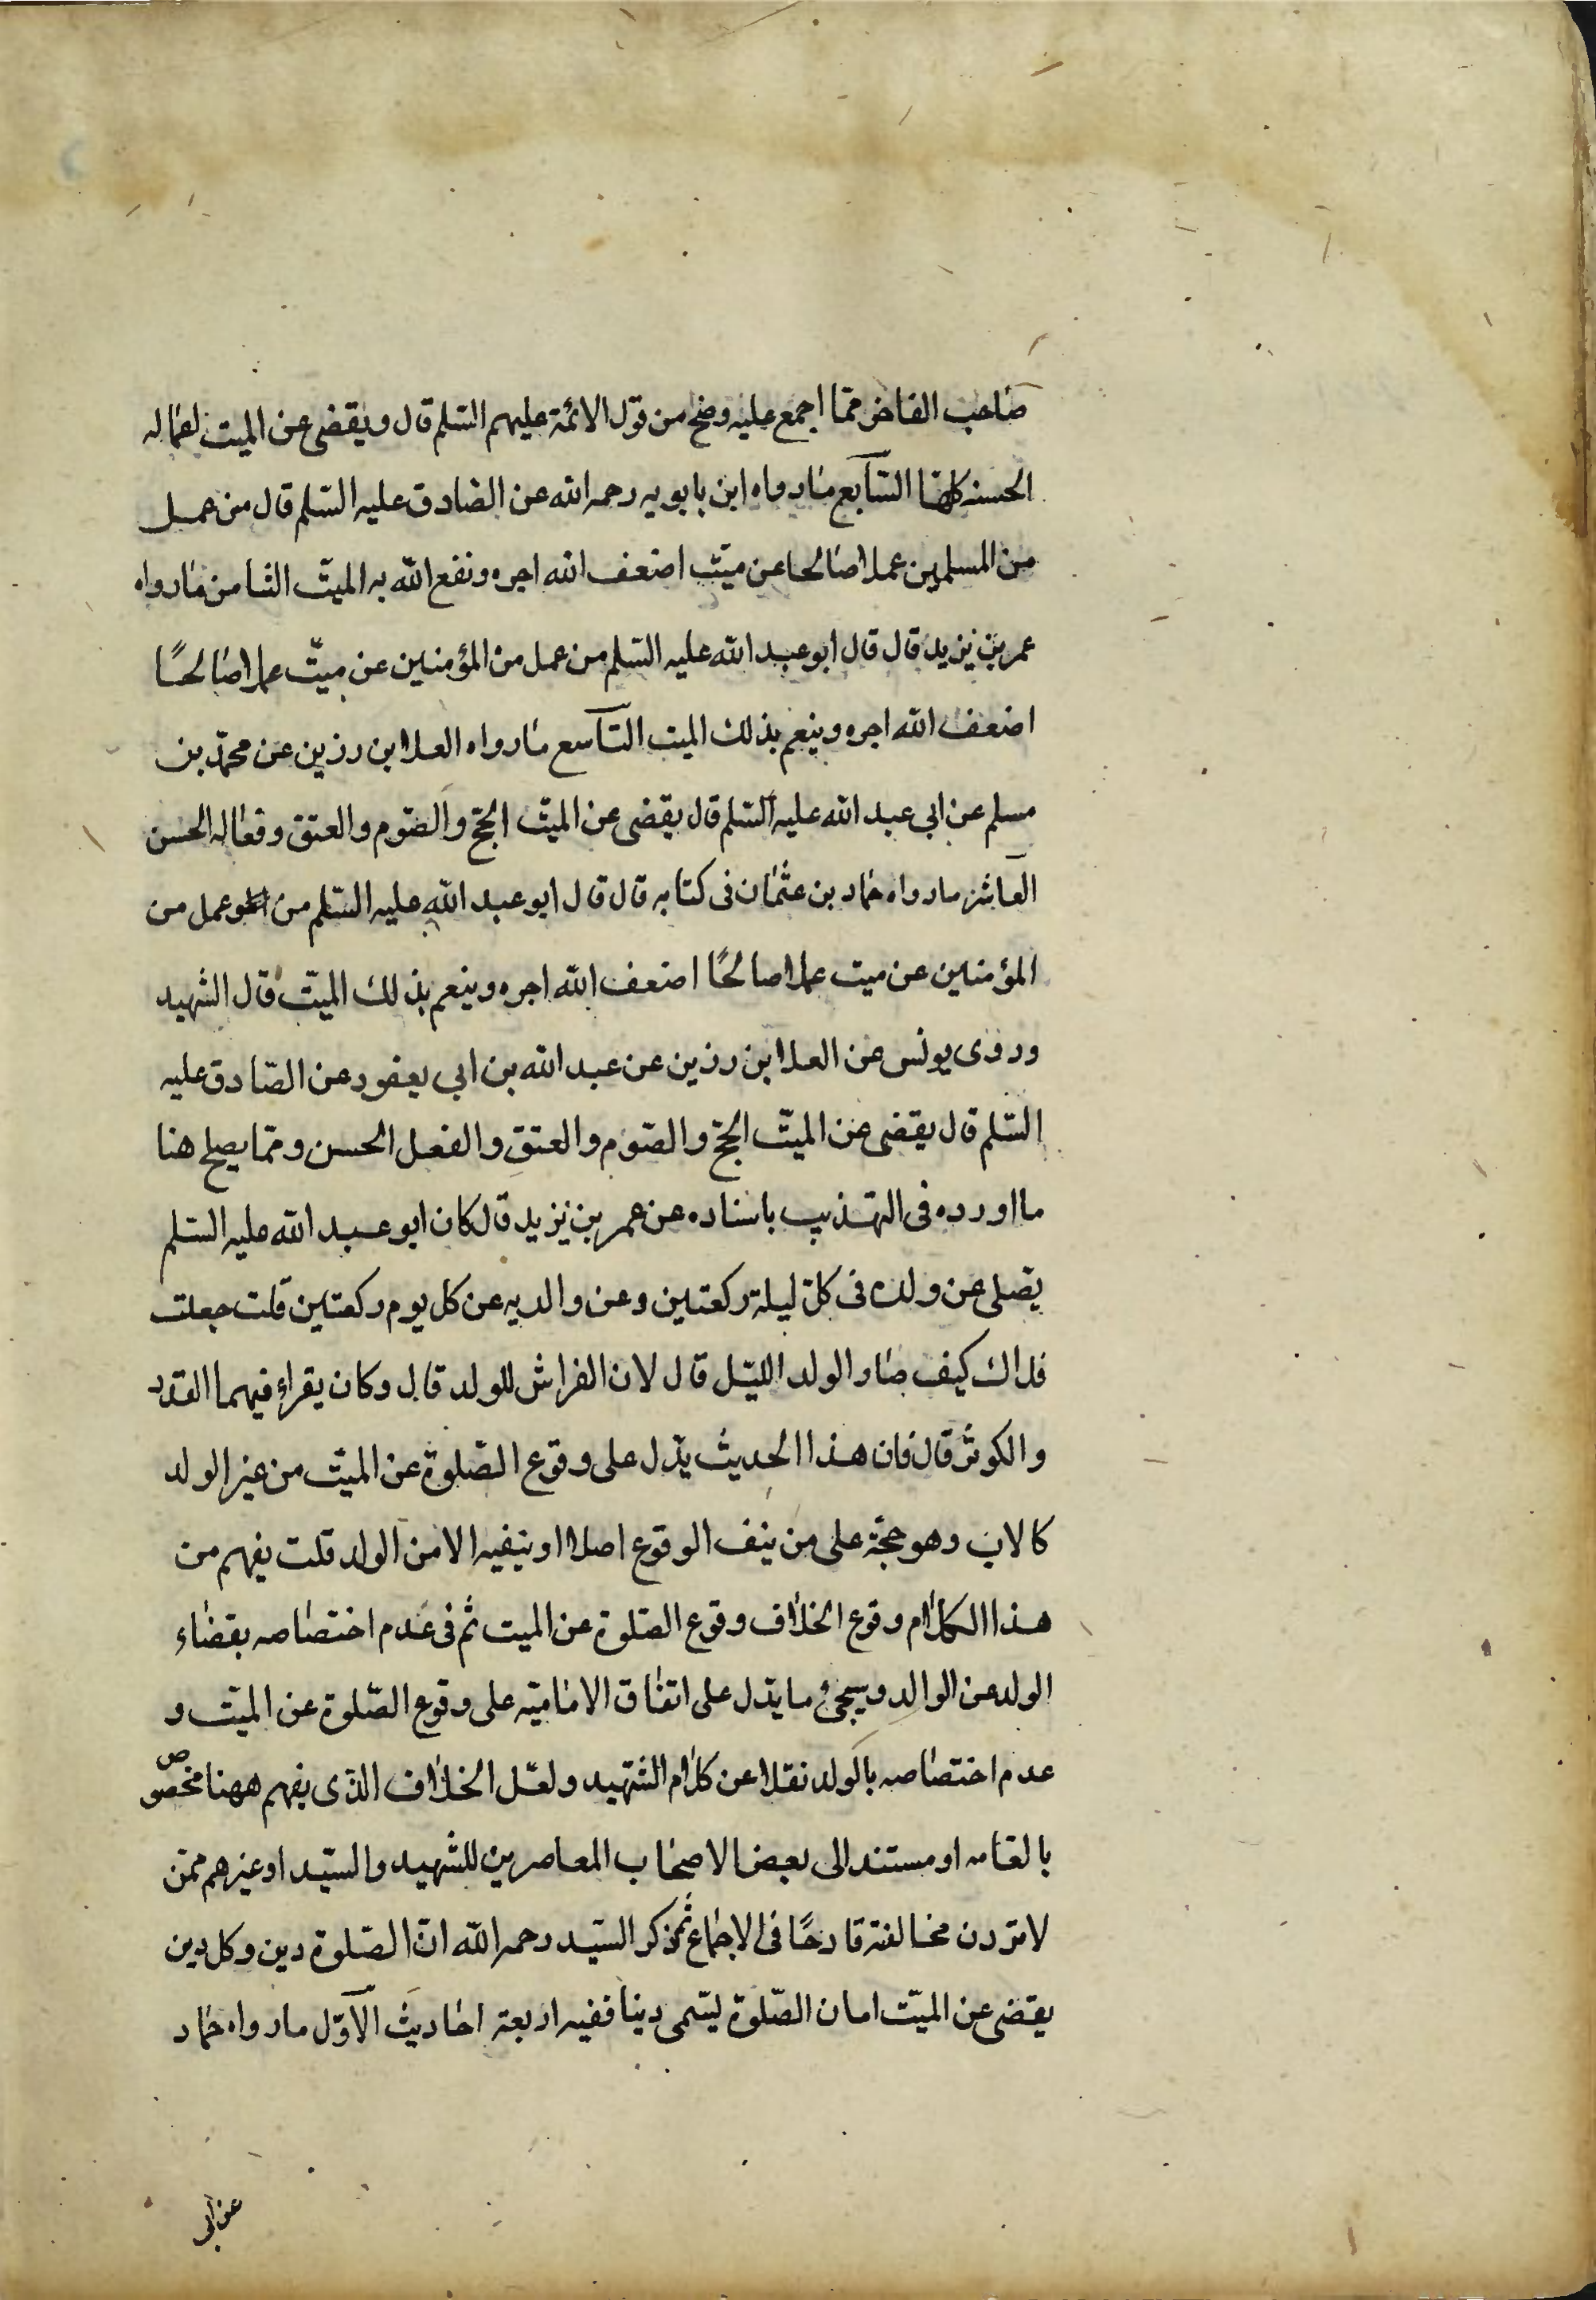 صاحب الفاخر مما اجمع عليه وصح من قول الائمة عليهم السلم قال ويقضى عن الميت اعماله
الحسنه كلها السابع ما رواه ابن بابويه رحمه الله عن الصادق عليه السلم قال من عمل
من المسلمين عملا صالحا عن ميت اضعف الله اجره ونفع الله به الميت الثامن ما رواه
عمر بن يزيد قال قال ابو عبد الله عليه السلم من عمل من المؤمنين عن ميت عملا صالحًا
اضعف الله اجره وينعم بذلك الميت التاسع ما رواه العلا ابن رزين عن محمد بن
مسلم عن ابى عبد الله عليه السلم قال يقضى عن الميت الحج والصوم والعتق وفعاله الحسن
العاشر ما رواه حماد بن عثمان فى كتابه قال قال ابو عبد الله عليه السلم من عمل من
المؤمنين عن ميت عملا صالحًا اضعف الله اجره وينعم بذلك الميت قال الشهيد
وروى يونس عن العلا ابن رزين عن عبد الله بن ابى يعفور عن الصادق عليه
السلم قال يقضى عن الميت الحج والصوم والعتق والفعل الحسن ومما يصلح هنا
ما اورده فى التهذيب باسناده عن عمر بن يزيد قال كان ابو عبد الله عليه السلم
يصلى عن ولده فى كل ليلة ركعتين وعن والديه عن كل يوم ركعتين قلت جعلت
فداك كيف صار الولد الليل قال لان الفراش للولد قال وكان يقراء فيهما القدر
والكوثر قال فان هذا الحديث يدل على وقوع الصلوة عن الميت من غير الولد
كالاب وهو حجة على من ينف الوقوع اصلا او ينفيه الا من الولد قلت يفهم من
هذا الكلام وقوع الخلاف وقوع الصلوة عن الميت ثم فى عدم اختصاصه بقضاء
الولد عن الوالد وسيجئ ما يدل على اتفاق الامامية على وقوع الصلوة عن الميت و
عدم اختصاصه بالولد نقلا عن كلام الشهيد ولعل الخلاف الذى يفهم ههنا مخصوص
بالعامه او مستند الى بعض الاصحاب المعاصرين للشهيد والسيد او غيرهم ممن
لا ترون مخالفته قادحًا فى الاجماع ثم ذكر السيد رحمه الله ان الصلوة دين وكل دين
يقضى عن الميت اما ان الصلوة ليسمى دينا ففيه اربعة احاديث الاول ما رواه حماد
عن ابى